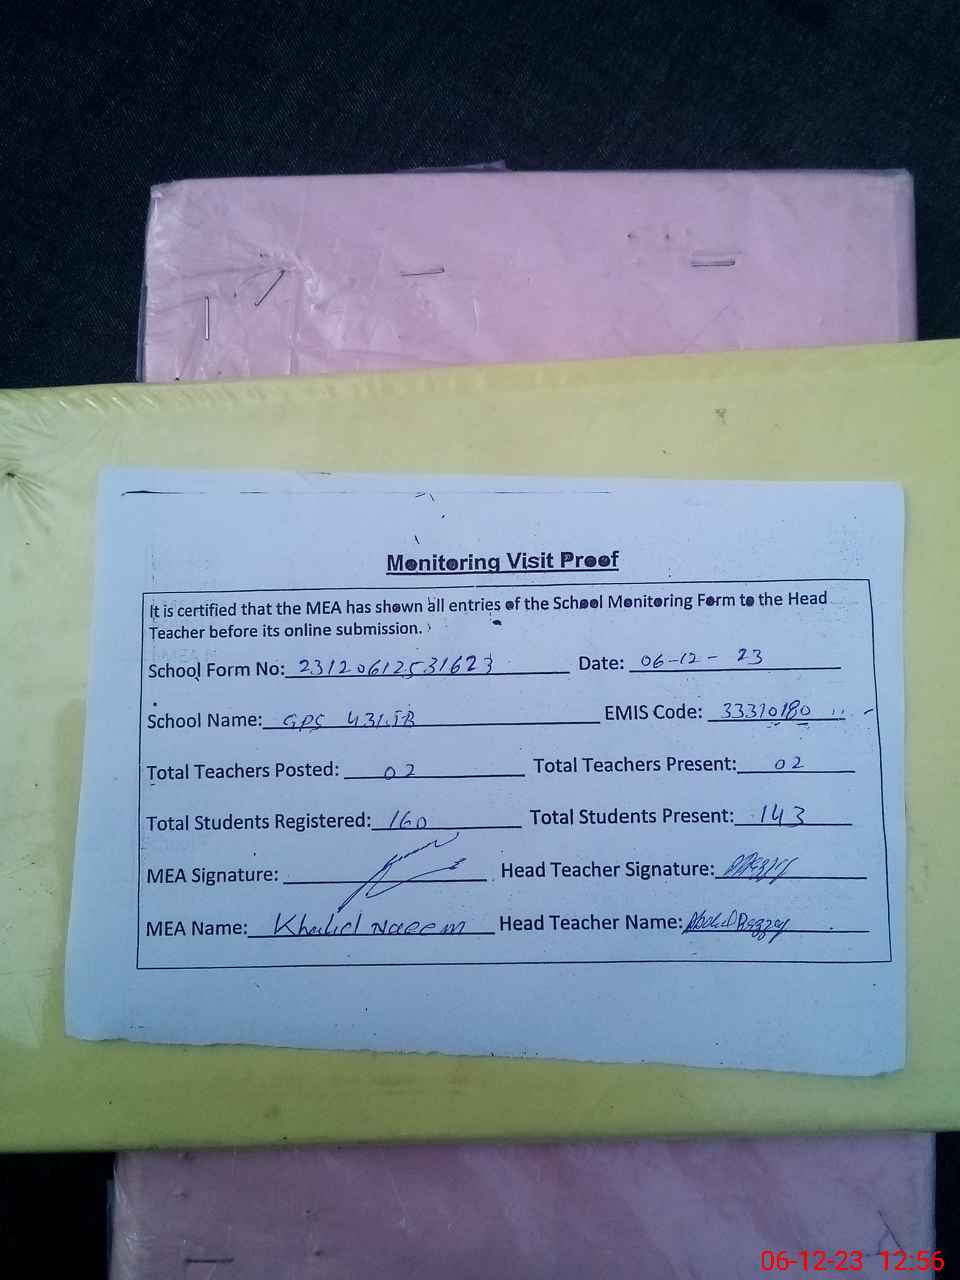 Monitoring Visit Proof
It is certified that the MEA has shown all entries of the School Monitoring Form to the Head
Teacher before its online submission.
School Form No: 23120612531623 Date: 06-12-23
School Name: GPS 431.JB EMIS Code: 33310180
Total Teachers Posted: 02 Total Teachers Present: 02
Total Students Registered: 160 Total Students Present: 143
MEA Signature: Head Teacher Signature:
MEA Name: Khalid Naeem Head Teacher Name: Abdul
06-12-23 12:56